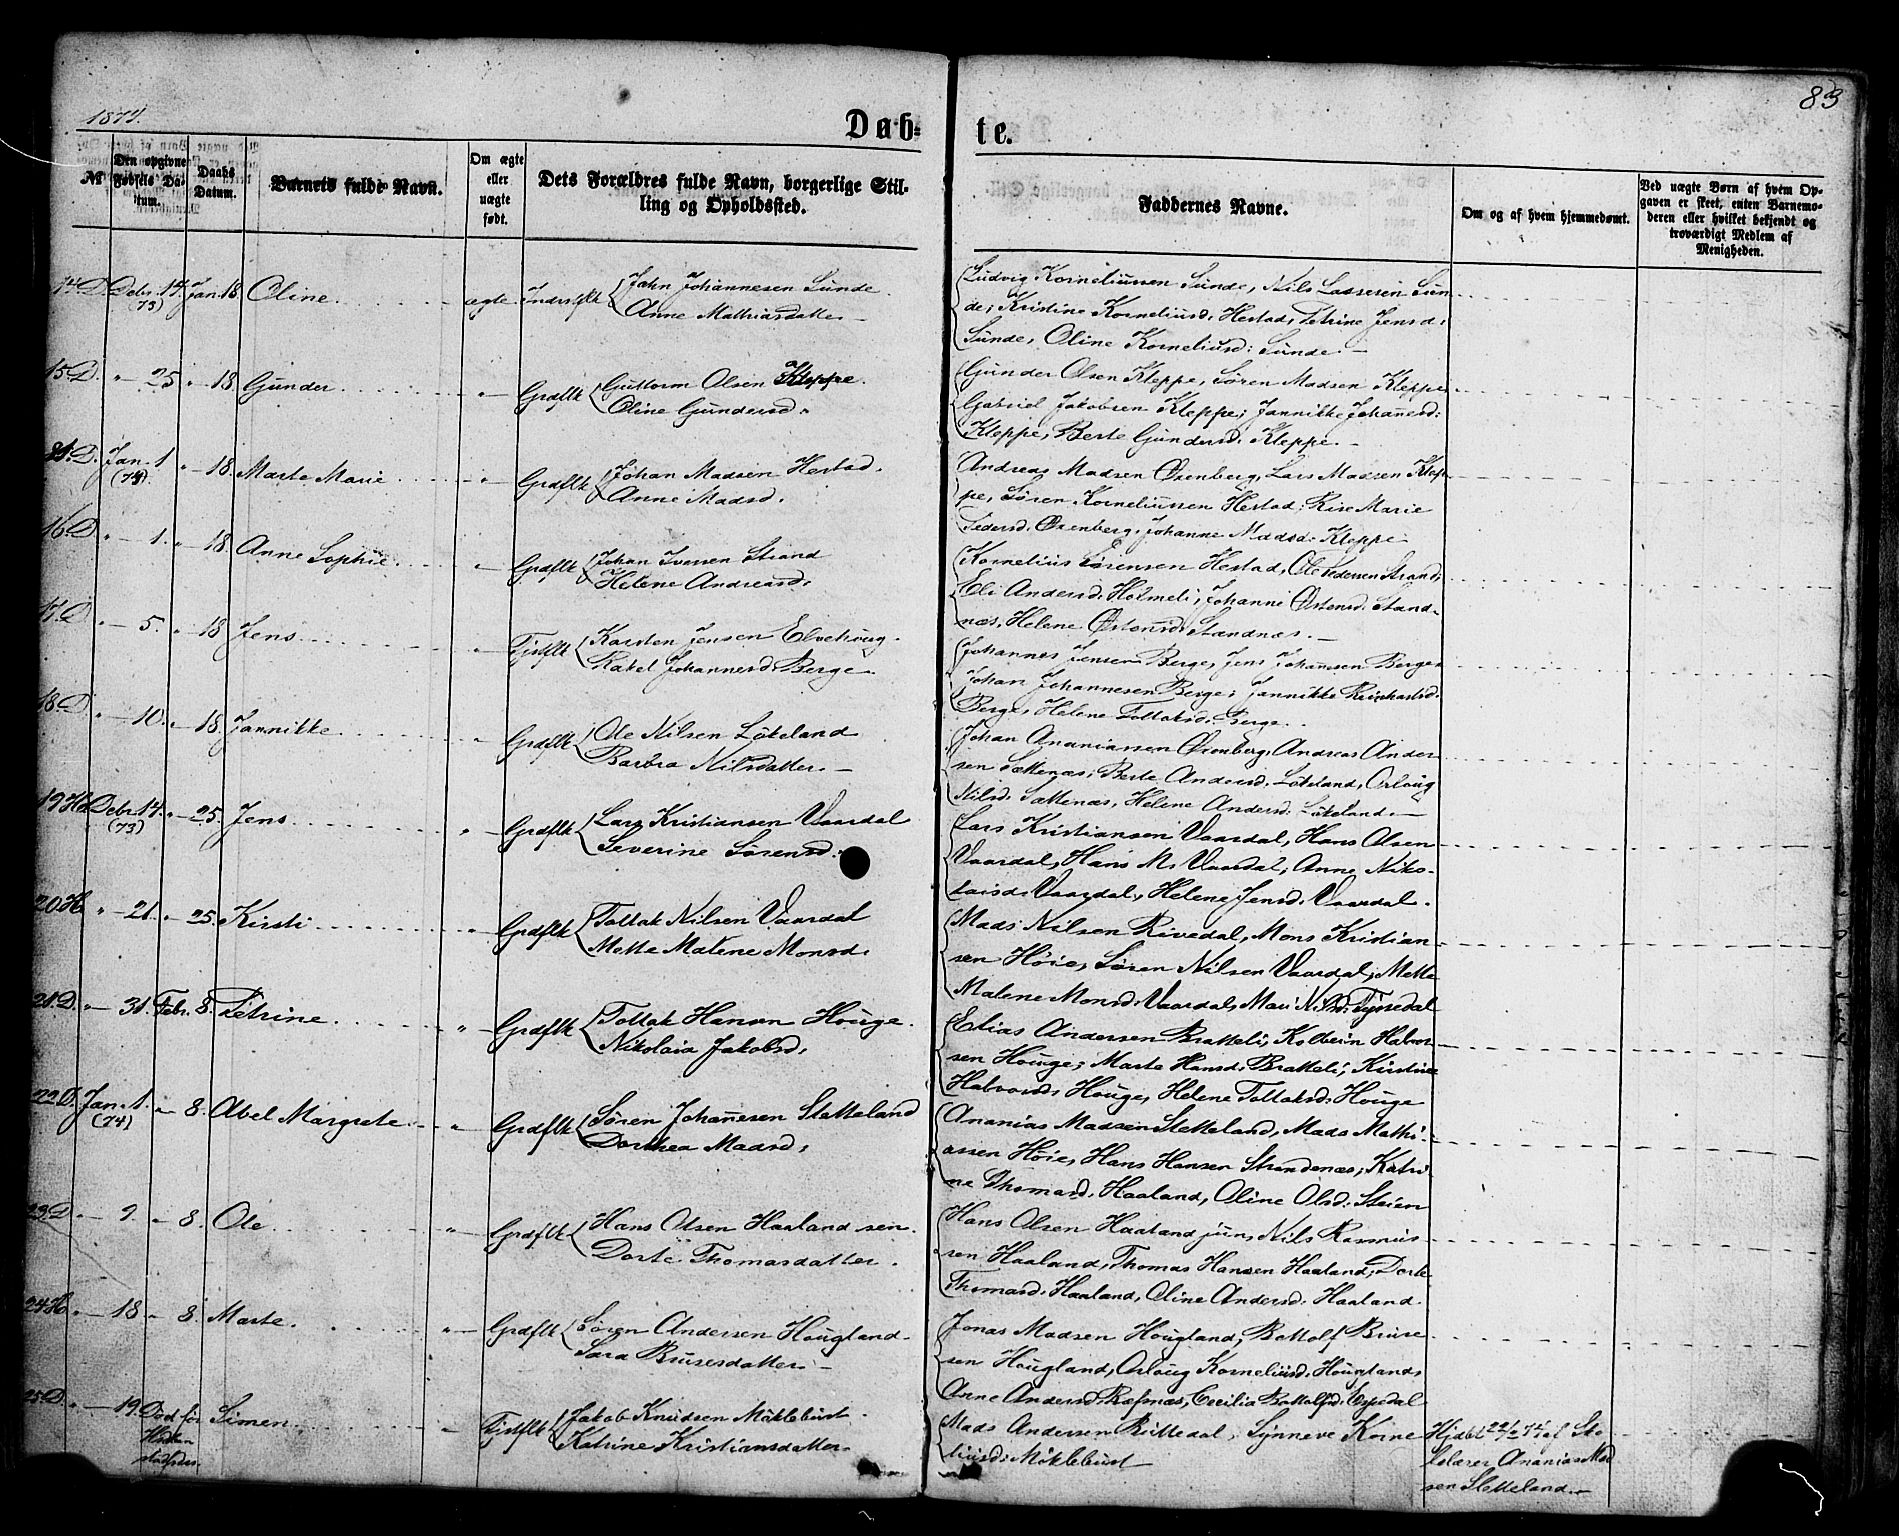 1874.
83
Døb-
te.
№
Den opgivne Fødsels Datum.
Daabs Datum.
Barnets fulde Navn.
Om ægte eller uægte født.
Dets Forældres fulde Navn, borgerlige Stilling og Opholdssted.
Faddernes Navne.
Om og af hvem hjemmedøbt.
Ved uægte Børn af hvem Opgaven er skeet, enten Barnemoderen eller hvilket bekjendt og troværdigt Medlem af Menigheden.
14.D. Debr. 14. (73) Jan. 18. Oline ægte. Indrstflk Jahn Johannesen Sunde.
Anne Mathiasdatter. –
Ludvig Korneliussen Sunde, Nils Lassesen Sun-
de; Kristine Korneliusd. Hestad, Petrine Jensd.
Sunde, Oline Korneliusd: Sunde. –
15.D. " – 25 " – 18 Gunder " Grdflk Guttorm Olsen Kleppe.
Oline Gundersd.
Gunder Olsen Kleppe, Søren Madsen Kleppe
Gabriel Jakobsen Kleppe; Jannikke Johanesd:
Kleppe, Berte Gundersd. Kleppe. –
81.D. Jan. 1 (74) " – 18. Marte Marie " Grdflk Johan Madsen Hestad.
Anne Madsd.
Andreas Madsen Oxenberg, Lars Madsen Klep-
pe, Søren Korneliussen Hestad; Lise Marie
Pedersd. Oxenberg, Johanne Madsd. Kleppe
16.D " – 1. " – 18. Anne Sophie " Grdflk Johan Iversen Strand
Helene Andreasd.
Kornelius Sørensen Hestad, Ole Pedersen Strand;
Eli Andersd. Holmeli, Johanne Østensd. Stand-
næs, Helene Østensd. Standnæs. –
17.D " – 5. " – 18 Jens " Fjstflk Karsten Jensen Elvehoug.
Rakel Johannesd. Berge
Johannes Jensen Berge, Jens Johanesen Berge
Johan Johannesen Berge; Jannikke Reinhartsd.
Berge, Helene Tollaksd. Berge.
18.D. " – 10. " – 18. Jannikke " Grdflk Ole Nilsen Løkeland
Barbra Nilsdatter. –
Johan Ananiassen Oxenberg, Andreas Ander-
sen Sættenæs; Berte Andersd. Løkeland, Orloug
Nilsd. Sættenæs, Helene Andersd. Løkeland. –
19H. Debr. 14. (73) " – 25. Jens " Grdflk Lars Kristiansen Vaardal
Severine Sørensd.
Lars Kristiansen Vaardal, Hans Olsen
Vaardal, Hans M. Vaardal; Anne Niko-
laisd. Vaardal, Helene Jensd. Vaardal.
20H. " – 21. " – 25. Kirsti " Grdflk Tollak Nilsen Vaardal
Mette Malene Monsd.
Mads Nilsen Rivedal, Mons Kristian-
sen Høie, Søren Nilsen Vaardal; Mette
Malene Monsd. Vaardal, Mari Nilsd. Tyssedal
21.D. " – 31. Febr. 8. Petrine " Grdflk Tollak Hansen Houge.
Nikolaia Jakobsd.
Elias Andersen Brakkeli, Kolbein Halvor-
sen Houge; Marte Hansd. Brakkeli, Kirstine
Halvorsd. Houge, Helene Tollaksd. Houge
22D. Jan. 1. (74) " – 8. Abel Margrete " Grdflk Søren Johanesen Sletteland
Dorthea Madsd.
Ananias Madsen Sletteland, Mads Mathi-
assen Høie, Hans Hansen Strandenæs; Katri
ne Thomasd. Haaland, Oline Olsd. Steien
23D. " – 9. " – 8. Ole " Grdflk Hans Olsen Haaland sen.
Dorte Thomasdatter.
Hans Olsen Haaland jun, Nils Rasmus-
sen Haaland, Thomas Hansen Haaland; Dorte
Thomasd. Haaland, Oline Andersd. Haaland.
24H " – 18 " – 8. Marte. " Grdflk Søren Andersen Hougland.
Sara Brusesdatter. –
Jonas Madsen Hougland, Bottolf Bruse-
sen Hougland, Orloug Korneliusd. Hougland,
Anne Andersd. Ræfnæs, Cecilia Bottolfsd. Espedal
25D. " – 19. Død før Simen. Fjstflk Jakob Knudsen Møklebust.
Katrine Kristiansdatter.
Mads Andersen Rittedal, Synneve Korne
liusd. Møklebust
Hjdbt 22/1 74 af Sko
lelærer Ananias Mad
sen Sletteland. –